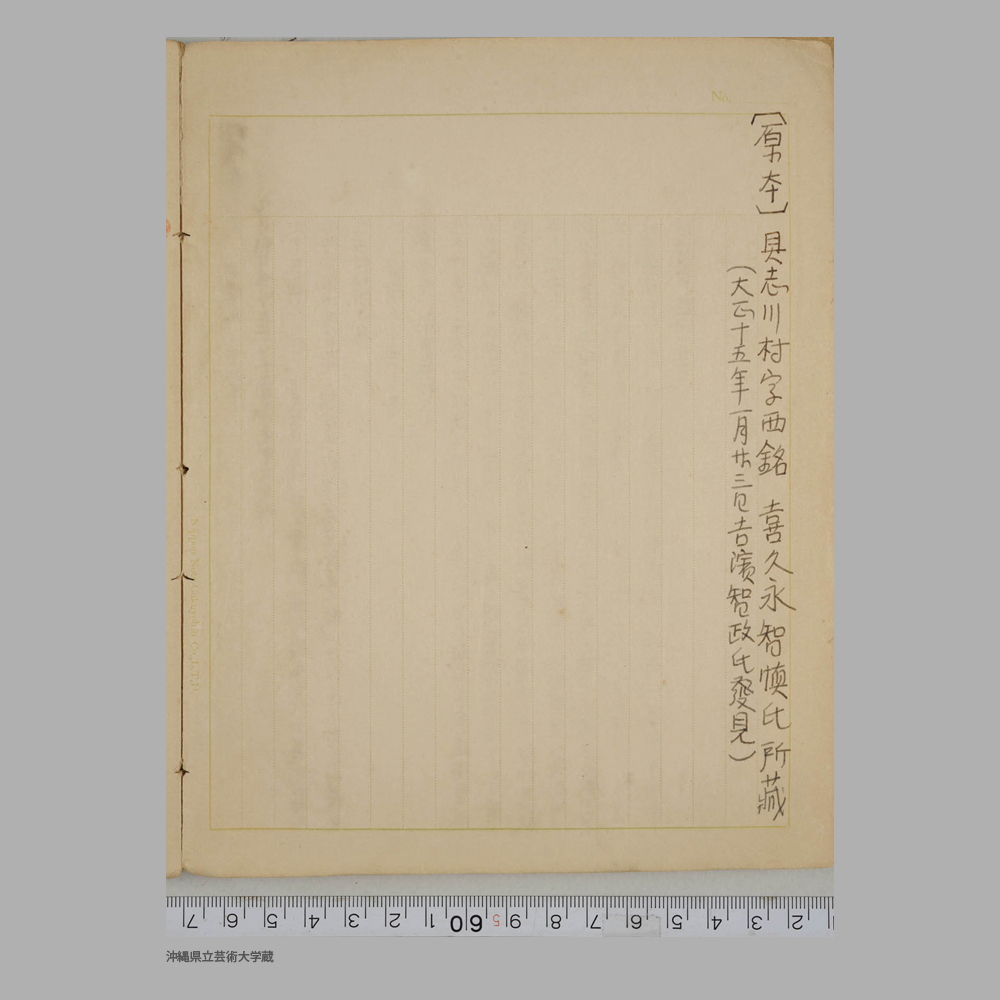 【原本】 具志川村字西銘 喜久永智慎氏所蔵
(大正十五年一月廿三日吉濱智政氏發見)
No.
7 6 5 4 3 2 1 60 5 9 8 7 6 5 4 3 2
沖縄県立芸術大学蔵